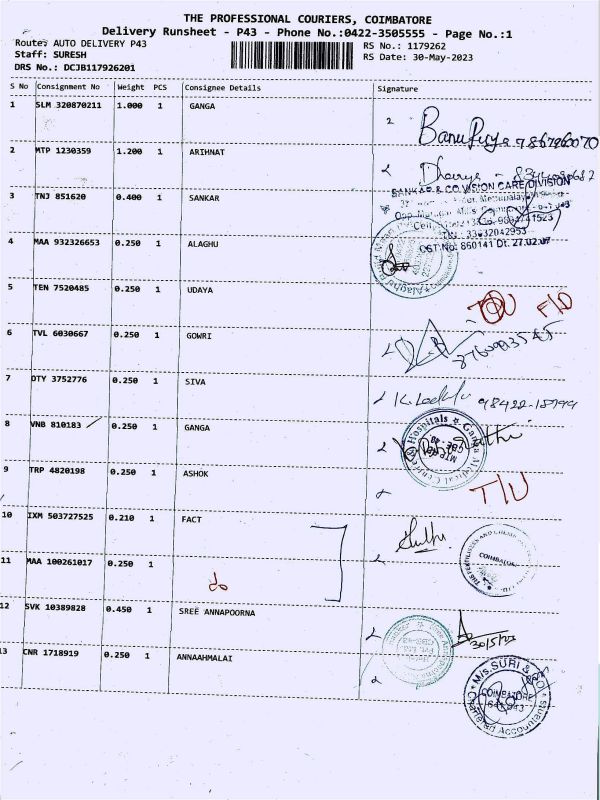 THE PROFESSIONAL COURIERS, COIMBATORE
Delivery Runsheet - P43 - Phone No.:0422-3505555 - Page No.:1
Route: AUTO DELIVERY P43
RS No.: 1179262
Staff: SURESH
RS Date: 30-May-2023
DRS No.: DCJB117926201
S No Consignment No Weight PCS Consignee Details Signature
1 SLM 320870211 1.000 1 GANGA
2 MTP 1230359 1.200 1 ARIHNAT
3 TNJ 851620 0.400 1 SANKAR
SANKAR & CO VISION CARE DIVISION
CST No: 860141 Dt. 27.02.07
4 MAA 932326653 0.250 1 ALAGHU
5 TEN 7520485 0.250 1 UDAYA
6 TVL 6030667 0.250 1 GOWRI
7 OTY 3752776 0.250 1 SIVA
98422-18799
8 VNB 810183 0.250 1 GANGA
9 TRP 4820198 0.250 1 ASHOK
T/U
10 IXM 503727525 0.210 1 FACT
COIMBATORE
11 MAA 100261017 0.250 1
do
12 SVK 10389828 0.450 1 SREE ANNAPOORNA
30/5/23
13 CNR 1718919 0.250 1 ANNAAHMALAI
M/s.SURI & CO
COIMBATORE
Chartered Accountants